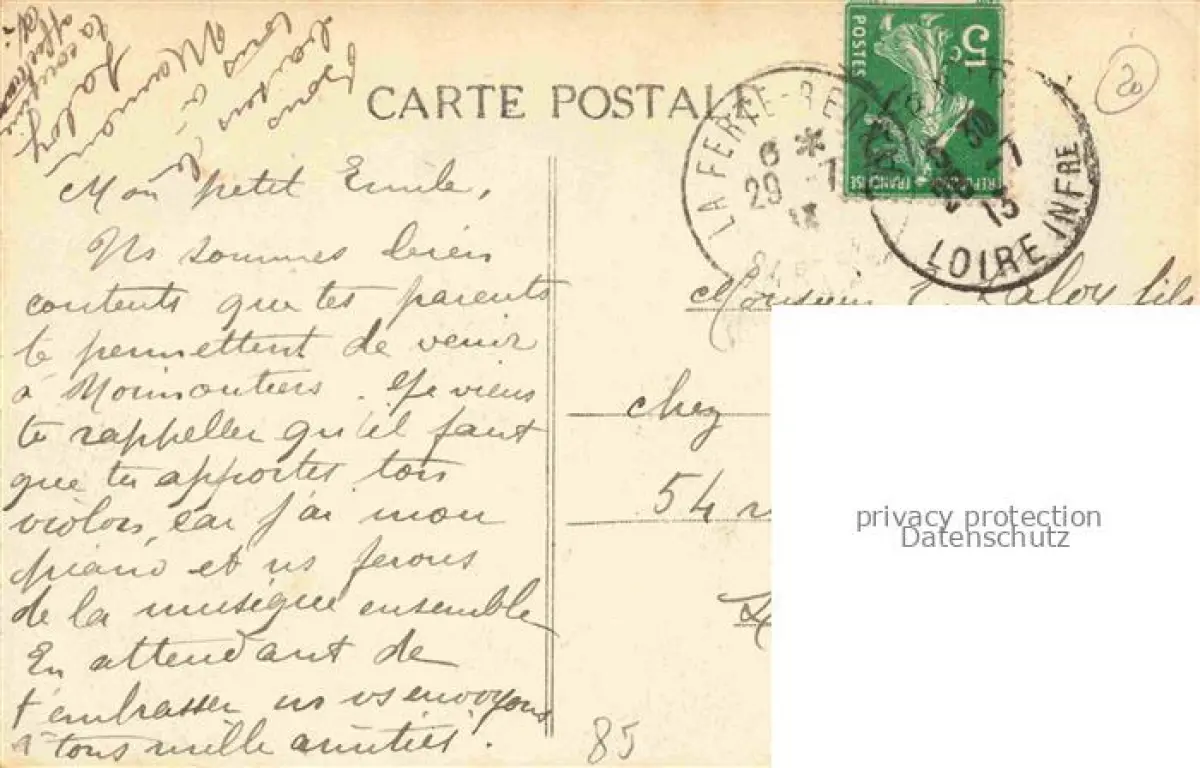 CARTE POSTALE
Mon petit Emile,
Ns sommes bien
contents que tes parents
te permettent de venir
à Noirmoutiers. Je viens
te rappeller qu'il faut
que tu apportes ton
violon, car j'ai mon
piano et ns ferons
de la musique ensemble
En attendant de
t'embrasser ns vs envoyons
à tous mille amitiés.
Maman
Laloy
ta cousine
5c
POSTES
REPUBLIQUE FRANÇAISE
LA FERTE-BERNARD
6 *
29 -7
13
LOIRE INFRE
30
-7
13
20
Monsieur E. Laloy fils
chez
54 r
85
privacy protection
Datenschutz